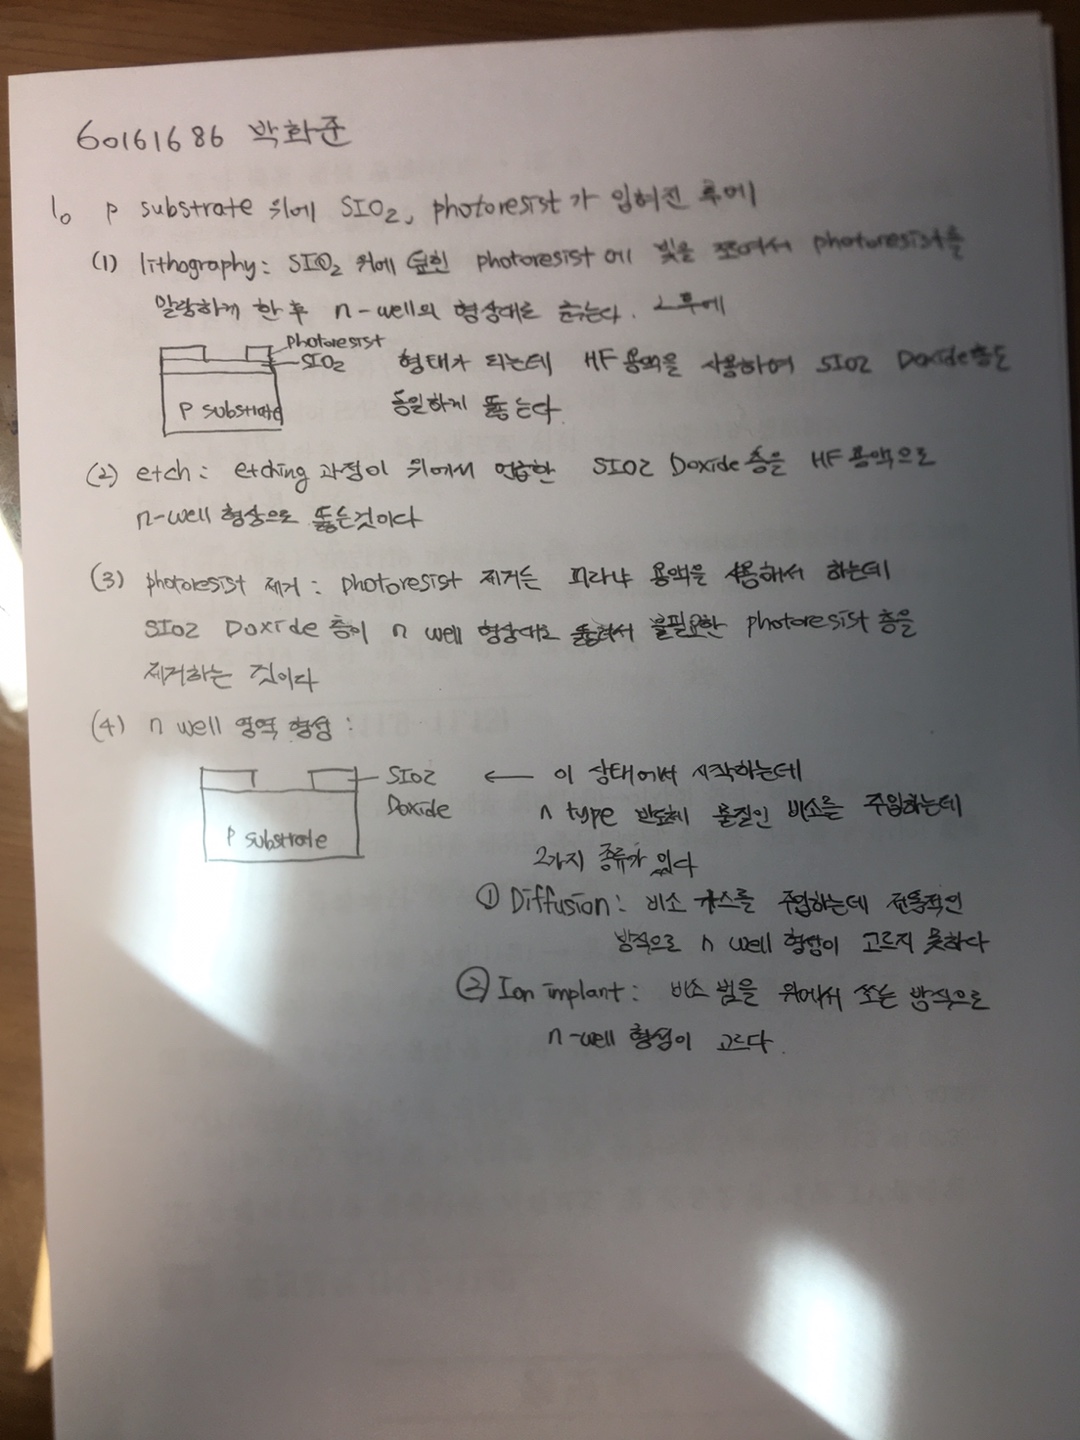 60161686 박화준
1. P substrate 위에 SIO2, photoresist가 입혀진 후에
(1) lithography: SIO2 위에 덮힌 photoresist에 빛을 쪼여서 photoresist를
말랑하게 한 후 n-well의 형상대로 뚫는다. 그후에
photoresist
SIO2
P substrate
형태가 되는데 HF 용액을 사용하여 SIO2 Doxide층도
동일하게 뚫는다.
(2) etch: etching 과정이 위에서 언급한 SIO2 Doxide 층을 HF 용액으로
n-well 형상으로 뚫는것이다
(3) photoresist 제거: photoresist 제거는 피라냐 용액을 사용해서 하는데
SIO2 Doxide 층이 n well 형상대로 뚫려서 불필요한 photoresist 층을
제거하는 것이다
(4) n well 영역 형성:
SIO2
Doxide
P substrate
← 이 상태에서 시작하는데
n type 반도체 물질인 비소를 주입하는데
2가지 종류가 있다
① Diffusion: 비소 가스를 주입하는데 전통적인
방식으로 n well 형성이 고르지 못하다
② Ion implant: 비소 빔을 위에서 쏘는 방식으로
n-well 형성이 고르다.